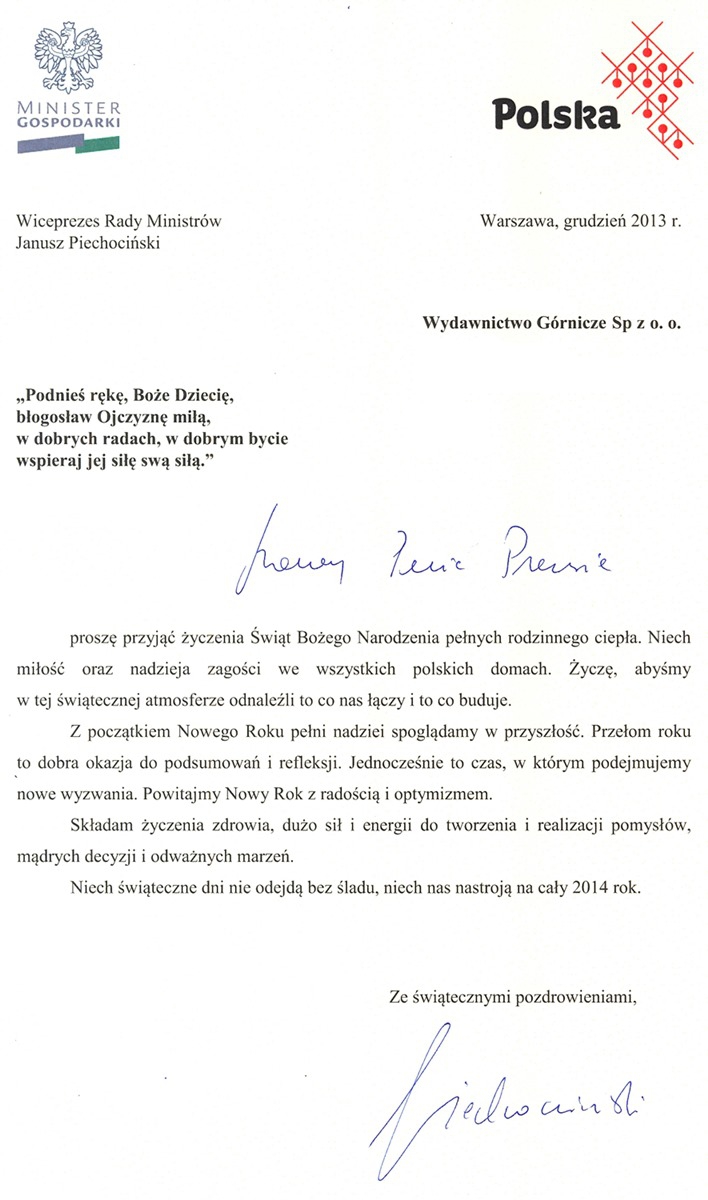 MINISTER
GOSPODARKI
Polska
Wiceprezes Rady Ministrów
Janusz Piechociński
Warszawa, grudzień 2013 r.
Wydawnictwo Górnicze Sp z o. o.
„Podnieś rękę, Boże Dziecię,
błogosław Ojczyznę miłą,
w dobrych radach, w dobrym bycie
wspieraj jej siłę swą siłą.”
Szanowny Panie Prezesie
proszę przyjąć życzenia Świąt Bożego Narodzenia pełnych rodzinnego ciepła. Niech
miłość oraz nadzieja zagości we wszystkich polskich domach. Życzę, abyśmy
w tej świątecznej atmosferze odnaleźli to co nas łączy i to co buduje.
Z początkiem Nowego Roku pełni nadziei spoglądamy w przyszłość. Przełom roku
to dobra okazja do podsumowań i refleksji. Jednocześnie to czas, w którym podejmujemy
nowe wyzwania. Powitajmy Nowy Rok z radością i optymizmem.
Składam życzenia zdrowia, dużo sił i energii do tworzenia i realizacji pomysłów,
mądrych decyzji i odważnych marzeń.
Niech świąteczne dni nie odejdą bez śladu, niech nas nastroją na cały 2014 rok.
Ze świątecznymi pozdrowieniami,
Piechociński